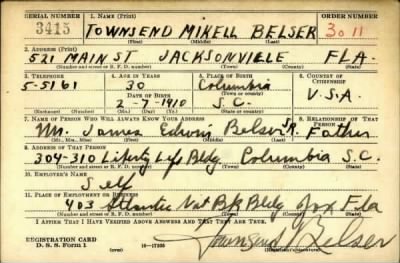 SERIAL NUMBER 1. NAME (Print) ORDER NUMBER
3415 TOWNSEND MIKELL BELSER 3011
(First) (Middle) (Last)
2. ADDRESS (Print)
521 MAIN ST JACKSONVILLE FLA.
(Number and street or R. F. D. number) (Town) (County) (State)
3. TELEPHONE 4. AGE IN YEARS 5. PLACE OF BIRTH 6. COUNTRY OF CITIZENSHIP
5-5161 30 Columbia U.S.A
DATE OF BIRTH (Town or county)
2-7-1910 S.C.
(Exchange) (Number) (Mo.) (Day) (Yr.) (State or country)
7. NAME OF PERSON WHO WILL ALWAYS KNOW YOUR ADDRESS 8. RELATIONSHIP OF THAT PERSON
Mr. James Edwin Belser Sr. Father
(Mr., Mrs., Miss) (First) (Middle) (Last)
9. ADDRESS OF THAT PERSON
304-310 Liberty Life Bldg. Columbia S.C.
(Number and street or R. F. D. number) (Town) (County) (State)
10. EMPLOYER'S NAME
Self
11. PLACE OF EMPLOYMENT OR BUSINESS
403 Atlantic Nat Bk Bldg Jax Fla
(Number and street or R. F. D. number) (Town) (County) (State)
I AFFIRM THAT I HAVE VERIFIED ABOVE ANSWERS AND THAT THEY ARE TRUE.
REGISTRATION CARD
D. S. S. Form 1 16-17105 Townsend Belser